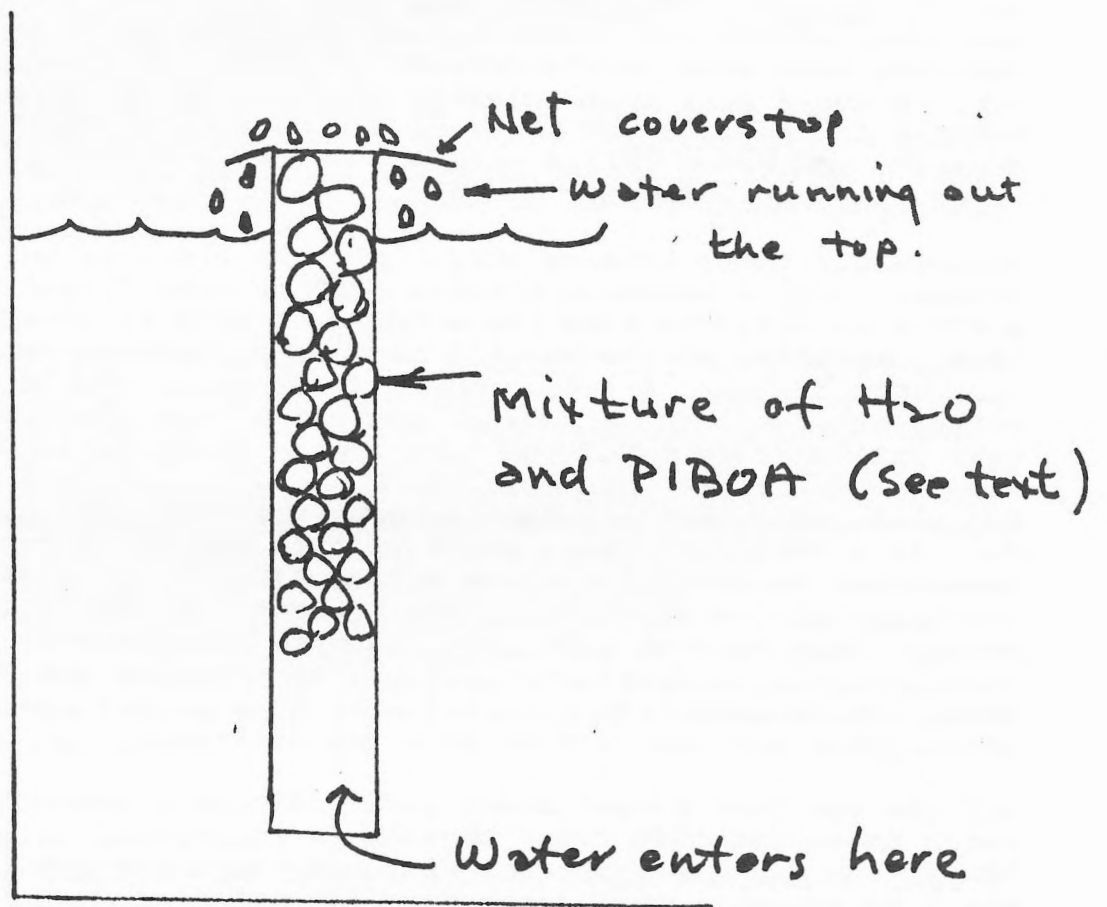 Net covers top
Water running out
the top.
Mixture of H2O
and PIBOA (see text)
Water enters here